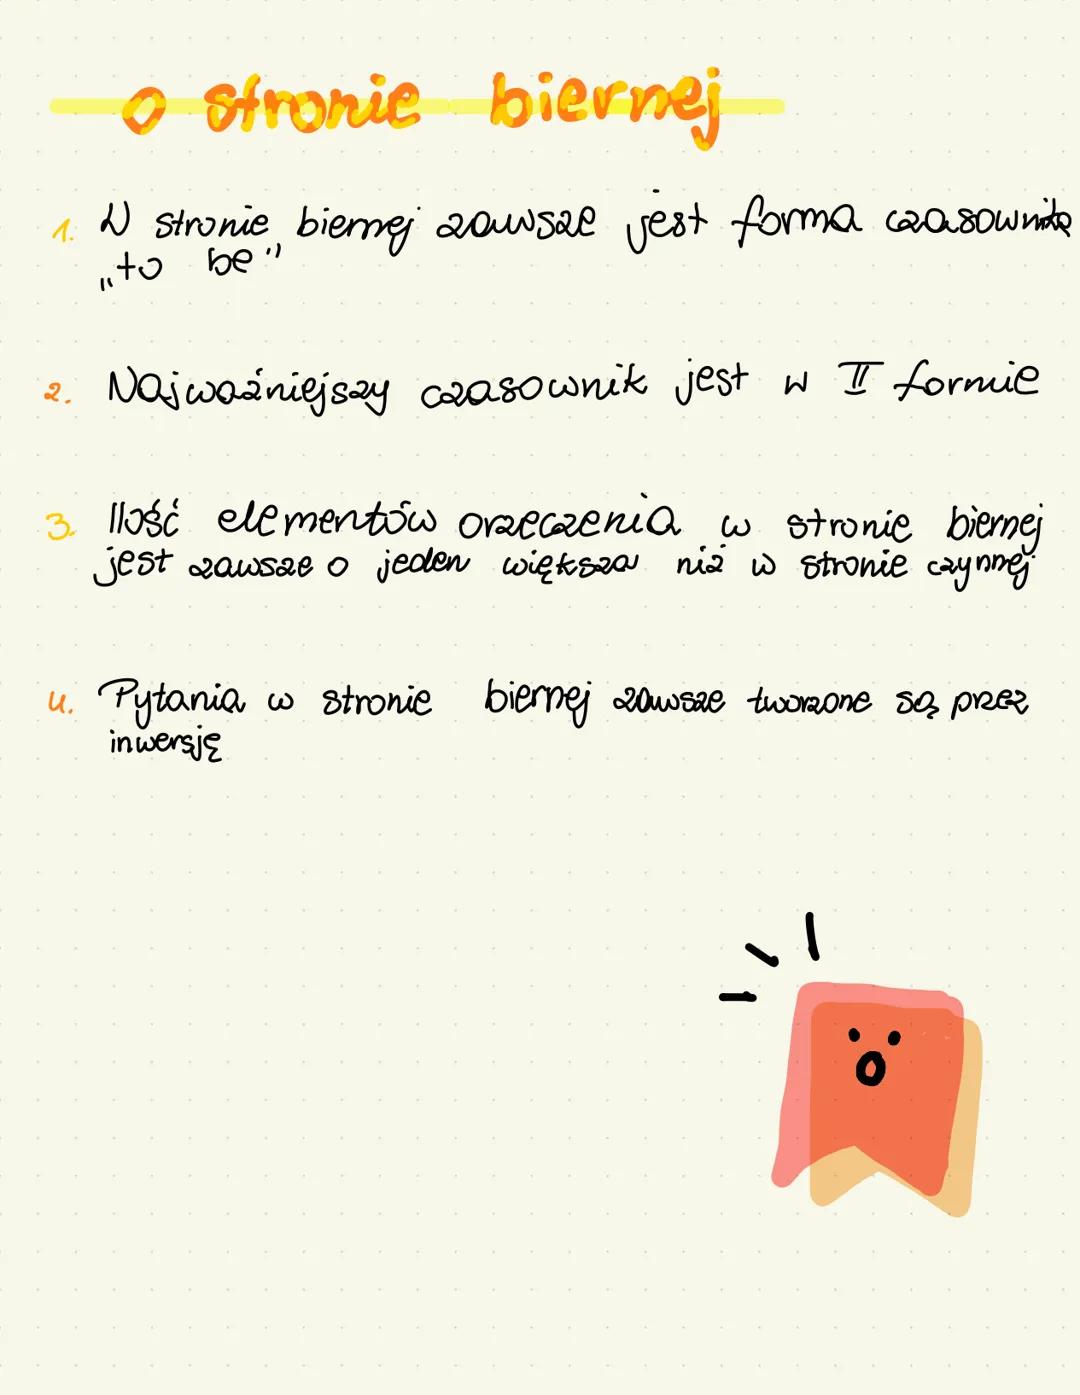 o stronie biernej
1. W stronie biernej zawsze jest forma czasownika
„to be”
2. Najważniejszy czasownik jest w II formie
3. Ilość elementów orzeczenia w stronie biernej
jest zawsze o jeden większa niż w stronie czynnej
4. Pytania w stronie biernej zawsze tworzone są przez
inwersję